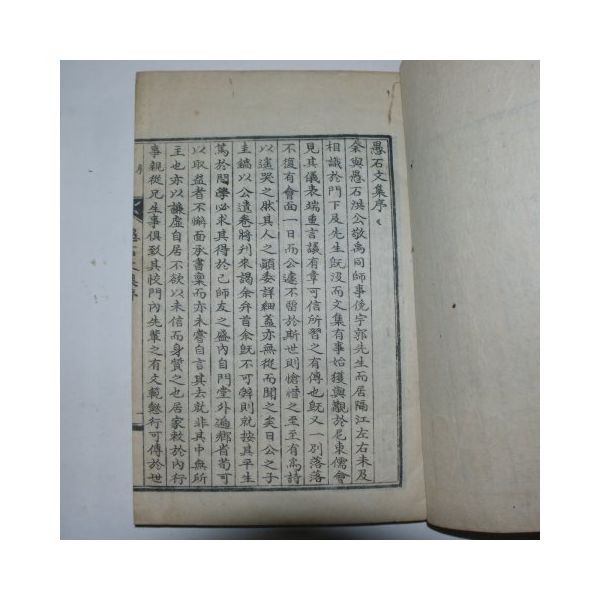 愚石文集序
余與愚石洪公敬禹同師事俛宇郭先生而居隔江左右未及
相識於門下及先生旣沒而文集有事始獲與觀於尼東儒會
見其儀表端重言議有章可信所習之有傳也旣又一別落落
不復有會面一日而公遽不留於斯世則愴惜之至至有爲詩
以遙哭之然其人之顚委詳細蓋亦無從而聞之矣日公之子
圭鎬以公遺卷將刋來謁余弁首余旣不可辭則就按其平生
篤於問學必求其得於己師友之盛內自門堂外遍鄕省苟可
以取益者不懈面承書稟而亦未嘗自言其去就非其中無所
主也亦以謙虛自居不欲以未信而身質之也居家敎於內行
事親從兄生事俱致其 門內先輩之有文範懿行可傳於世
愚石文集序